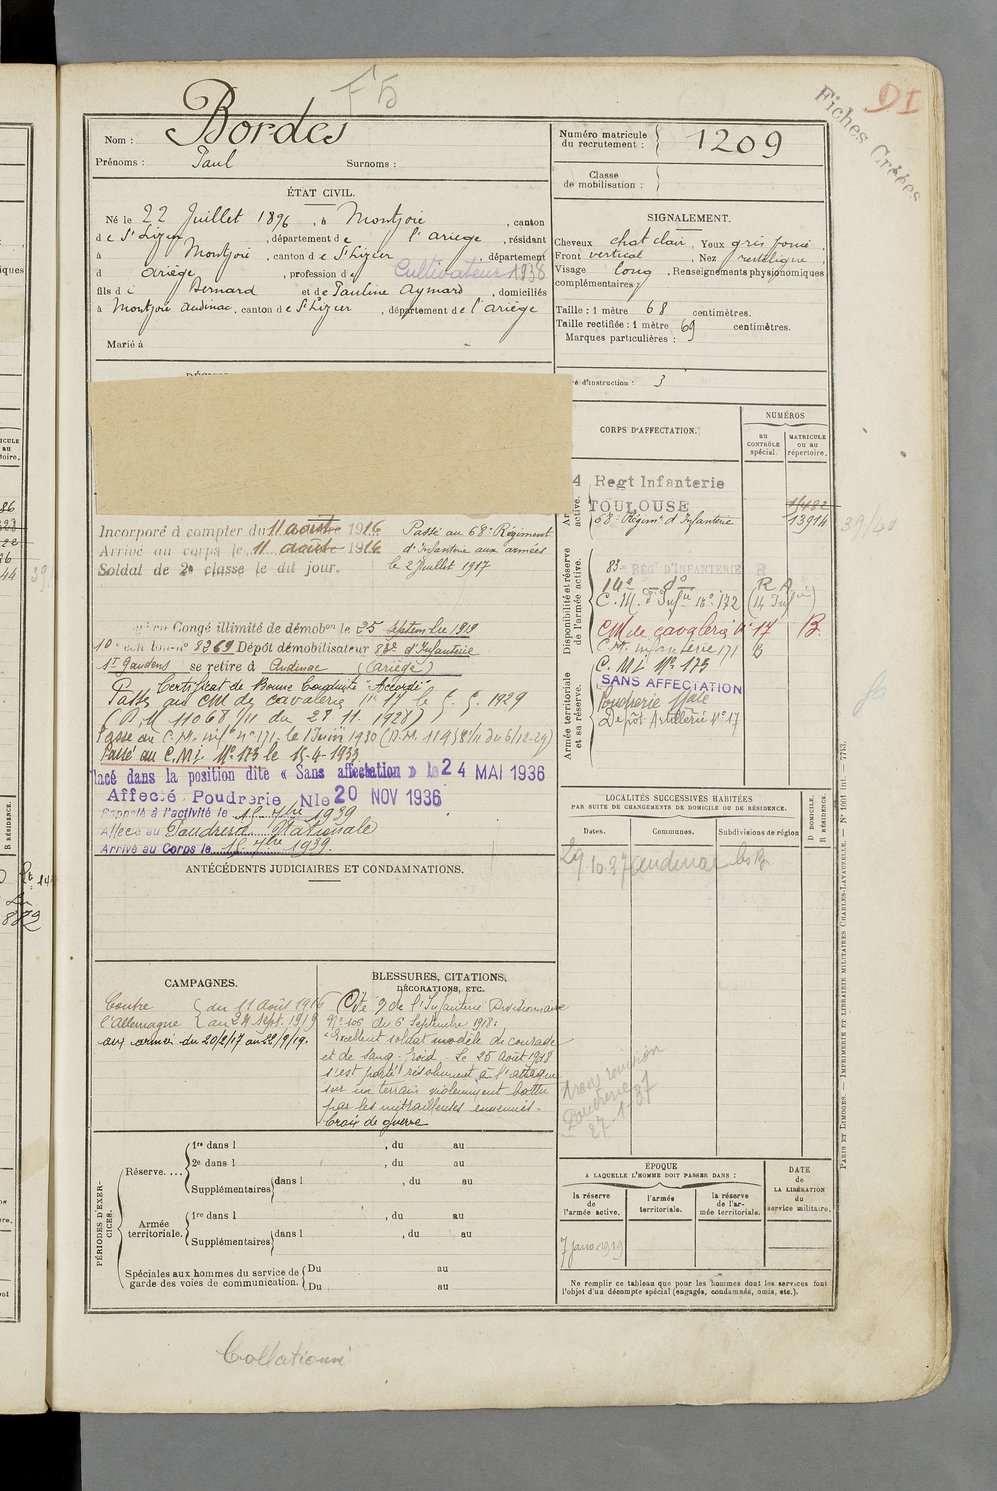 F5
DI
Fiches Créées
Nom : Bordes
Prénoms : Paul Surnoms :
Numéro matricule du recrutement : 1209
Classe de mobilisation :
ÉTAT CIVIL.
Né le 22 Juillet 1896, à Montjoie, canton
de St Lizier, département de l'ariège, résidant
à Montjoie, canton de St Lizier, département
d ariège, profession de Cultivateur 1938
fils de Bernard et de Pauline Aymard, domiciliés
à Montjoie audinac, canton de St Lizier, département de l'ariège
Marié à
SIGNALEMENT.
Cheveux chat clair, Yeux gris foncé,
Front vertical, Nez rectiligne,
Visage long, Renseignements physionomiques
complémentaires :
Taille : 1 mètre 68 centimètres.
Taille rectifiée : 1 mètre 69 centimètres.
Marques particulières :
é d'instruction : 3
CORPS D'AFFECTATION.
NUMÉROS
au CONTRÔLE spécial.
MATRICULE ou au répertoire.
4 Regt Infanterie
TOULOUSE
68e Régimt d'Infanterie
active.
1482
13914
39/40
Incorporé à compter du 11 août 1916
Arrivé au corps le 11 août 1916
Soldat de 2e classe le dit jour.
Passé au 68e Régiment
d'Infanterie aux armées
le 2 Juillet 1917
Congé illimité de démobon le 25 septembre 1919
Dépôt démobilisateur 83e d'Infanterie
St Gaudens se retire à Audinac (Ariège)
Certificat de Bonne Conduite "Accordé"
Passé au CM de cavalerie No 17 le 5. 5. 1929
(D.M 11068 1/11 du 27 11. 1928)
Passé au C.M. inf no 171. le 1 Juin 1930
Passé au C.M.I. No 173 le 15-4-1933
lacé dans la position dite « Sans affectation » le 24 MAI 1936
Affecté Poudrerie Nle 20 NOV 1936
Rappelé à l'activité le 15 7bre 1939
Affecté au Poudrerie Nationale
Arrivé au Corps le 15 7bre 1939.
Disponibilité et réserve de l'armée active.
83e REGt D'INFANTERIE R
14e do R A
C. M. d'Infie no 172
CM de cavalerie No 17 B
C.M. infanterie 171 B
C. M.I. No 173
Armée territoriale et sa réserve.
SANS AFFECTATION
Poudrerie Nale
Dépôt Artillerie No 17
ANTÉCÉDENTS JUDICIAIRES ET CONDAMNATIONS.
LOCALITÉS SUCCESSIVES HABITÉES
PAR SUITE DE CHANGEMENTS DE DOMICILE OU DE RÉSIDENCE.
D DOMICILE. R RÉSIDENCE.
Dates. Communes. Subdivisions de région
29 10 37 audinac
CAMPAGNES.
Contre l'Allemagne
du 11 Août 1916
au 24 Sept. 1919
aux armées du 20/2/17 au 22/9/19.
BLESSURES, CITATIONS,
DÉCORATIONS, ETC.
Cité O de l'Infanterie Divisionnaire
No 106 du 6 Septembre 1918 :
"Excellent soldat modèle de courage
et de sang-froid. Le 25 Août 1918
s'est porté résolument à l'attaque
sur un terrain violemment battu
par les mitrailleuses ennemies -
Croix de guerre
Poudrerie
27-1-37
PÉRIODES D'EXERCICES.
Réserve....
1re dans l , du au
2e dans l , du au
Supplémentaires dans l , du au
Armée territoriale.
1re dans l , du au
Supplémentaires dans l , du au
Spéciales aux hommes du service de garde des voies de communication.
Du au
Du au
ÉPOQUE
A LAQUELLE L'HOMME DOIT PASSER DANS :
la réserve de l'armée active.
l'armée territoriale.
la réserve de l'armée territoriale.
DATE de LA LIBÉRATION du service militaire.
Ne remplir ce tableau que pour les hommes dont les services font
l'objet d'un décompte spécial (engagés, condamnés, omis, etc.).
PARIS ET LIMOGES. — IMPRIMERIE ET LIBRAIRIE MILITAIRES CHARLES-LAVAUZELLE. — No 1601 int. — 7713.
Collationné